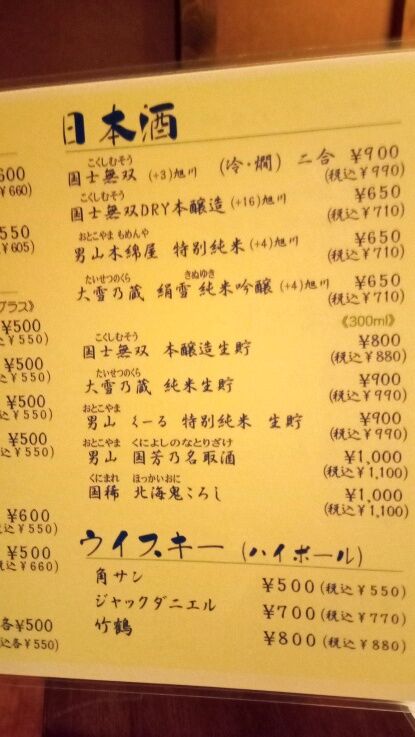 日本酒
こくしむそう
国士無双 (+3)旭川 (冷・燗) 二合 ¥900
(税込¥990)
こくしむそう
国士無双DRY本醸造 (+16)旭川 ¥650
(税込¥710)
おとこやま もめんや
男山木綿屋 特別純米 (+4)旭川 ¥650
(税込¥710)
たいせつのくら きぬゆき
大雪乃蔵 絹雪 純米吟醸 (+4)旭川 ¥650
(税込¥710)
《300ml》
こくしむそう
国士無双 本醸造生貯 ¥800
(税込¥880)
たいせつのくら
大雪乃蔵 純米生貯 ¥900
(税込¥990)
おとこやま
男山 くーる 特別純米 生貯 ¥900
(税込¥990)
おとこやま くによしのなとりざけ
男山 国芳乃名取酒 ¥1,000
(税込¥1,100)
くにまれ ほっかいおに
国稀 北海鬼ころし ¥1,000
(税込¥1,100)
ウイスキー (ハイボール)
角サン ¥500(税込¥550)
ジャックダニエル ¥700(税込¥770)
竹鶴 ¥800(税込¥880)
600
¥660)
550
¥605)
グラス》
¥500
込¥550)
¥500
込¥550)
¥500
込¥550)
¥500
込¥550)
¥600
込¥550)
¥500
込¥660)
各¥500
込各¥550)